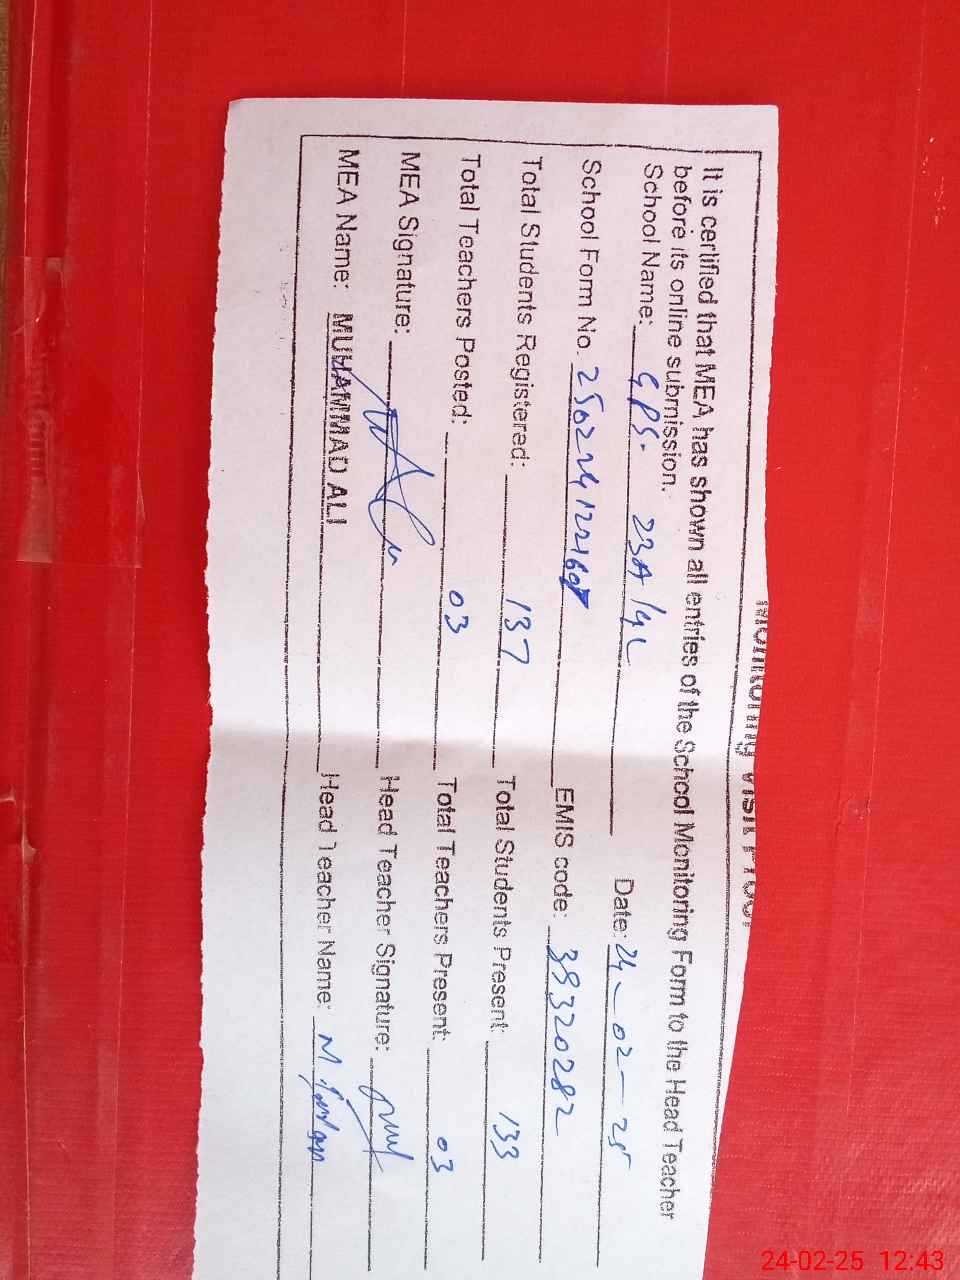 Monitoring Visit Proof
It is certified that MEA has shown all entries of the School Monitoring Form to the Head Teacher
before its online submission.
School Name: GPS. 23A/4L Date: 24-02-25
School Form No. EMIS code: 39320282
Total Students Registered: 137 Total Students Present: 133
Total Teachers Posted: 03 Total Teachers Present: 03
MEA Signature: Head Teacher Signature:
MEA Name: MUHAMMAD ALI Head Teacher Name: M.
24-02-25 12:43